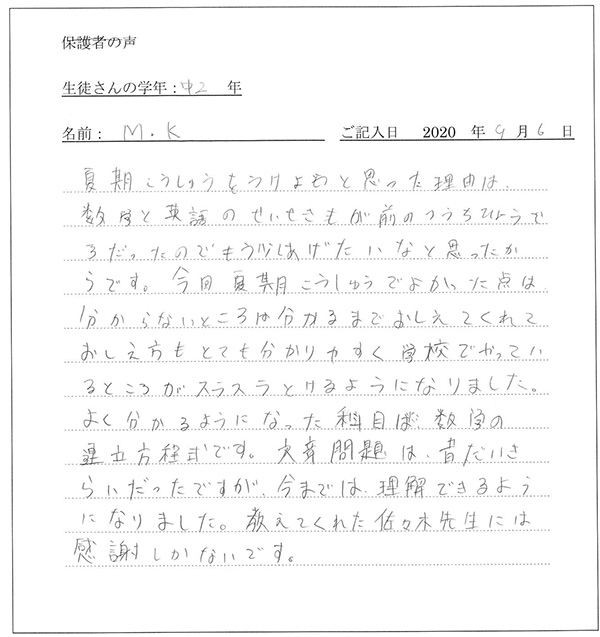 保護者の声
生徒さんの学年：中2 年
名前： M.K ご記入日 2020 年 9 月 6 日
夏期こうしゅうをうけようと思った理由は、
数学と英語のせいせきもが前のつうちひょうで
3だったのでもう少しあげたいなと思ったか
らです。今回夏期こうしゅうでよかった点は
分からないところは分かるまでおしえてくれて
おしえ方もとても分かりやすく学校でやってい
るところがスラスラとけるようになりました。
よく分かるようになった科目は、数学の
連立方程式です。文章問題は、昔だいき
らいだったですが、今までは、理解できるよう
になりました。教えてくれた佐々木先生には
感謝しかないです。